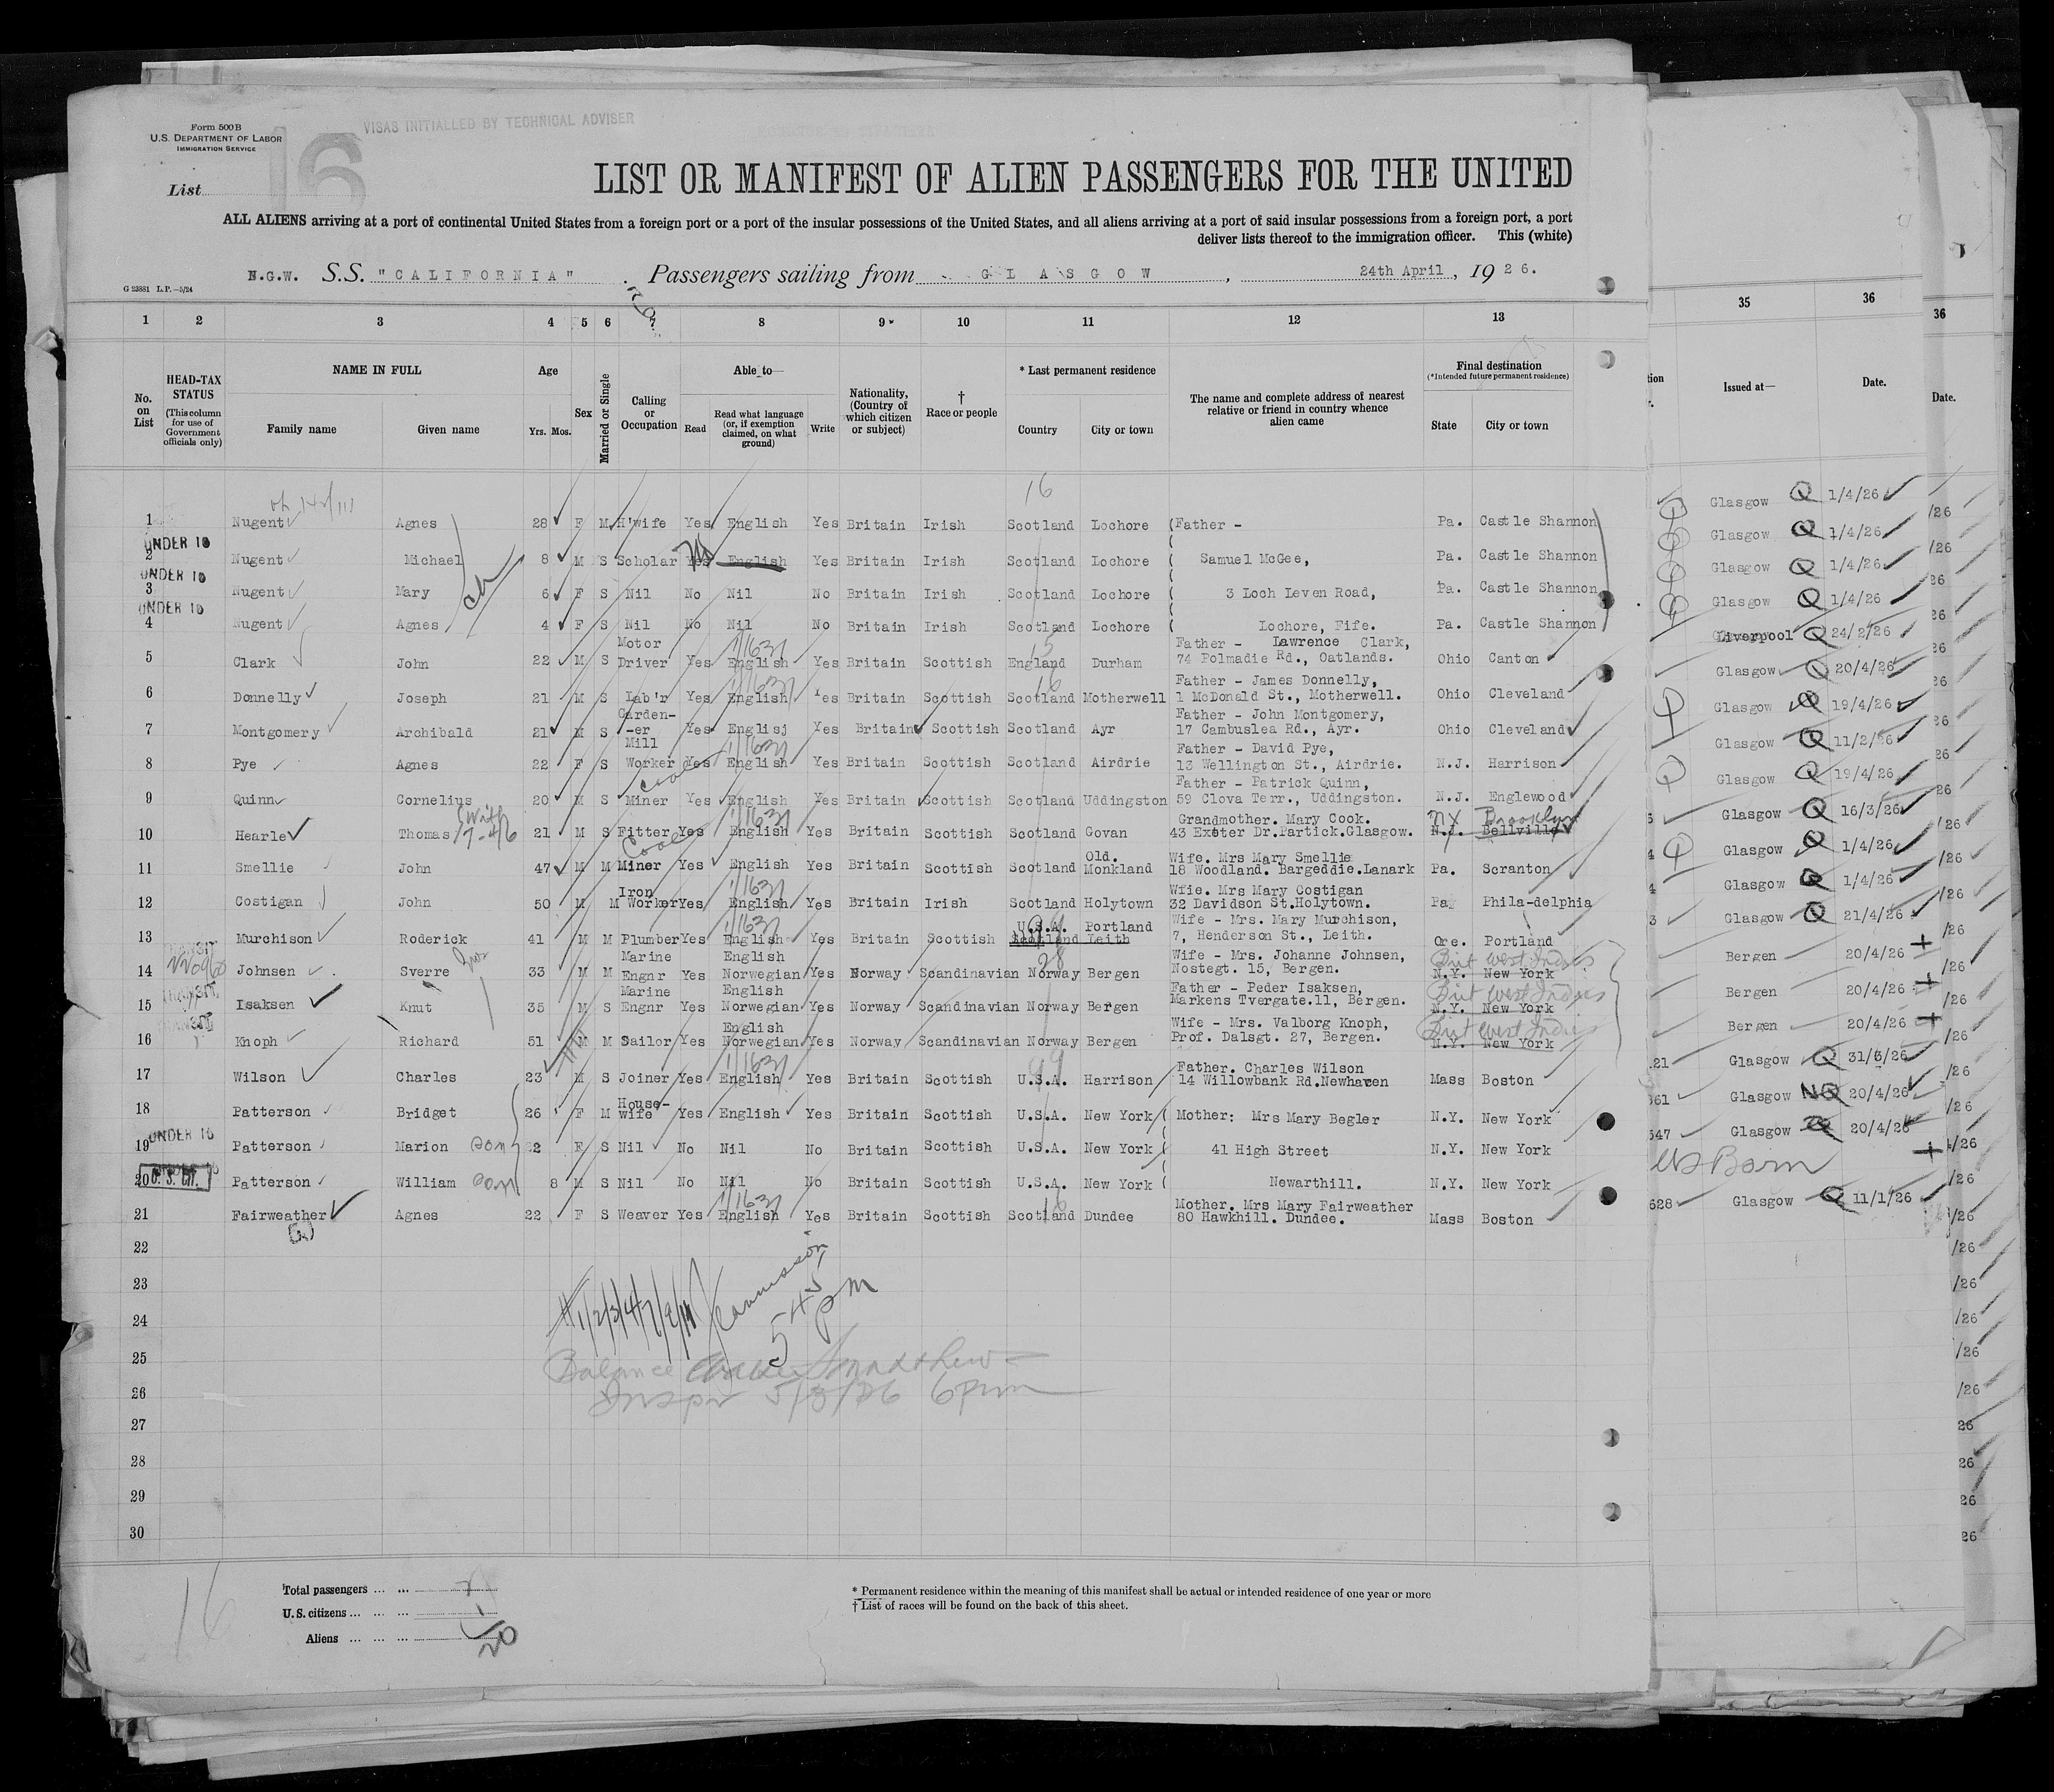 Form 500 B
U.S. DEPARTMENT OF LABOR
IMMIGRATION SERVICE
VISAS INITIALLED BY TECHNICAL ADVISER
16
List
LIST OR MANIFEST OF ALIEN PASSENGERS FOR THE UNITED
ALL ALIENS arriving at a port of continental United States from a foreign port or a port of the insular possessions of the United States, and all aliens arriving at a port of said insular possessions from a foreign port, a port
deliver lists thereof to the immigration officer. This (white)
N.G.W. S.S. "CALIFORNIA" Passengers sailing from GLASGOW, 24th April, 1926.
G 23881 L.P.—5/24
1 2 3 4 5 6 7 8 9 10 11 12 13 35 36 36
No. on List
HEAD-TAX STATUS (This column for use of Government officials only)
NAME IN FULL
Family name Given name
Age
Yrs. Mos.
Sex
Married or Single
Calling or Occupation
Able to—
Read
Read what language (or, if exemption claimed, on what ground)
Write
Nationality, (Country of which citizen or subject)
† Race or people
* Last permanent residence
Country City or town
The name and complete address of nearest relative or friend in country whence alien came
Final destination
(*Intended future permanent residence)
State City or town
Issued at— Date. Date.
16
1 Nugent Agnes 28 F M H'wife Yes English Yes Britain Irish Scotland Lochore (Father - Pa. Castle Shannon Glasgow 1/4/26
UNDER 16
2 Nugent Michael 8 M S Scholar Yes English Yes Britain Irish Scotland Lochore ( Samuel McGee, Pa. Castle Shannon Glasgow 1/4/26
UNDER 16
3 Nugent Mary 6 F S Nil No Nil No Britain Irish Scotland Lochore ( 3 Loch Leven Road, Pa. Castle Shannon Glasgow 1/4/26
UNDER 16
4 Nugent Agnes 4 F S Nil No Nil No Britain Irish Scotland Lochore ( Lochore, Fife. Pa. Castle Shannon Glasgow 1/4/26
Motor Father - Lawrence Clark, Liverpool 24/2/26
5 Clark John 22 M S Driver Yes English Yes Britain Scottish England Durham 74 Polmadie Rd., Oatlands. Ohio Canton
Father - James Donnelly, Glasgow 20/4/26
6 Donnelly Joseph 21 M S Lab'r Yes English Yes Britain Scottish Scotland Motherwell 1 McDonald St., Motherwell. Ohio Cleveland
Garden- Father - John Montgomery, Glasgow 19/4/26
7 Montgomery Archibald 21 M S -er Yes Englisj Yes Britain Scottish Scotland Ayr 17 Cambuslea Rd., Ayr. Ohio Cleveland
Mill Father - David Pye, Glasgow 11/2/26
8 Pye Agnes 22 F S Worker Yes English Yes Britain Scottish Scotland Airdrie 13 Wellington St., Airdrie. N.J. Harrison
Coal Father - Patrick Quinn, Glasgow 19/4/26
9 Quinn Cornelius 20 M S Miner Yes English Yes Britain Scottish Scotland Uddingston 59 Clova Terr., Uddingston. N.J. Englewood
Grandmother. Mary Cook. NY Brooklyn Glasgow 16/3/26
10 Hearle Thomas 21 M S Fitter Yes English Yes Britain Scottish Scotland Govan 43 Exeter Dr.Partick.Glasgow. N.J. Bellville
Coal Old. Wife. Mrs Mary Smellie Glasgow 1/4/26
11 Smellie John 47 M M Miner Yes English Yes Britain Scottish Scotland Monkland 18 Woodland. Bargeddie.Lanark Pa. Scranton
Iron Wfie. Mrs Mary Costigan Glasgow 1/4/26
12 Costigan John 50 M M Worker Yes English Yes Britain Irish Scotland Holytown 32 Davidson St.Holytown. Pa Phila-delphia
U.S.A. Portland Wife - Mrs. Mary Murchison, Glasgow 21/4/26
13 Murchison Roderick 41 M M Plumber Yes English Yes Britain Scottish Scotland Leith 7, Henderson St., Leith. Ore. Portland
TRANSIT Marine English Wife - Mrs. Johanne Johnsen, Brit West Indies
14 Johnsen Sverre 33 M M Engnr Yes Norwegian Yes Norway Scandinavian Norway Bergen Nostegt. 15, Bergen. N.Y. New York Bergen 20/4/26
TRANSIT Marine English Father - Peder Isaksen, Brit West Indies
15 Isaksen Knut 35 M S Engnr Yes Norwegian Yes Norway Scandinavian Norway Bergen Markens Tvergate.11, Bergen. N.Y. New York Bergen 20/4/26
TRANSIT English Wife - Mrs. Valborg Knoph, Brit West Indies
16 Knoph Richard 51 M M Sailor Yes Norwegian Yes Norway Scandinavian Norway Bergen Prof. Dalsgt. 27, Bergen. N.Y. New York Bergen 20/4/26
Father. Charles Wilson
17 Wilson Charles 23 M S Joiner Yes English Yes Britain Scottish U.S.A. Harrison 14 Willowbank Rd.Newhaven Mass Boston Glasgow 31/3/26
House-
18 Patterson Bridget 26 F M wife Yes English Yes Britain Scottish U.S.A. New York ( Mother: Mrs Mary Begler N.Y. New York Glasgow NQ 20/4/26
UNDER 16
19 Patterson Marion 2 F S Nil No Nil No Britain Scottish U.S.A. New York ( 41 High Street N.Y. New York Glasgow 20/4/26
U.S. CIT.
20 Patterson William 8 M S Nil No Nil No Britain Scottish U.S.A. New York ( Newarthill. N.Y. New York US Born
Mother. Mrs Mary Fairweather
21 Fairweather Agnes 22 F S Weaver Yes English Yes Britain Scottish Scotland Dundee 80 Hawkhill. Dundee. Mass Boston Glasgow 11/1/26
22
23
24
25
26
27
28
29
30
5 45 pm
Balance
Inspr 5/3/26 6pm
16
Total passengers
U.S. citizens
Aliens 20
* Permanent residence within the meaning of this manifest shall be actual or intended residence of one year or more
† List of races will be found on the back of this sheet.